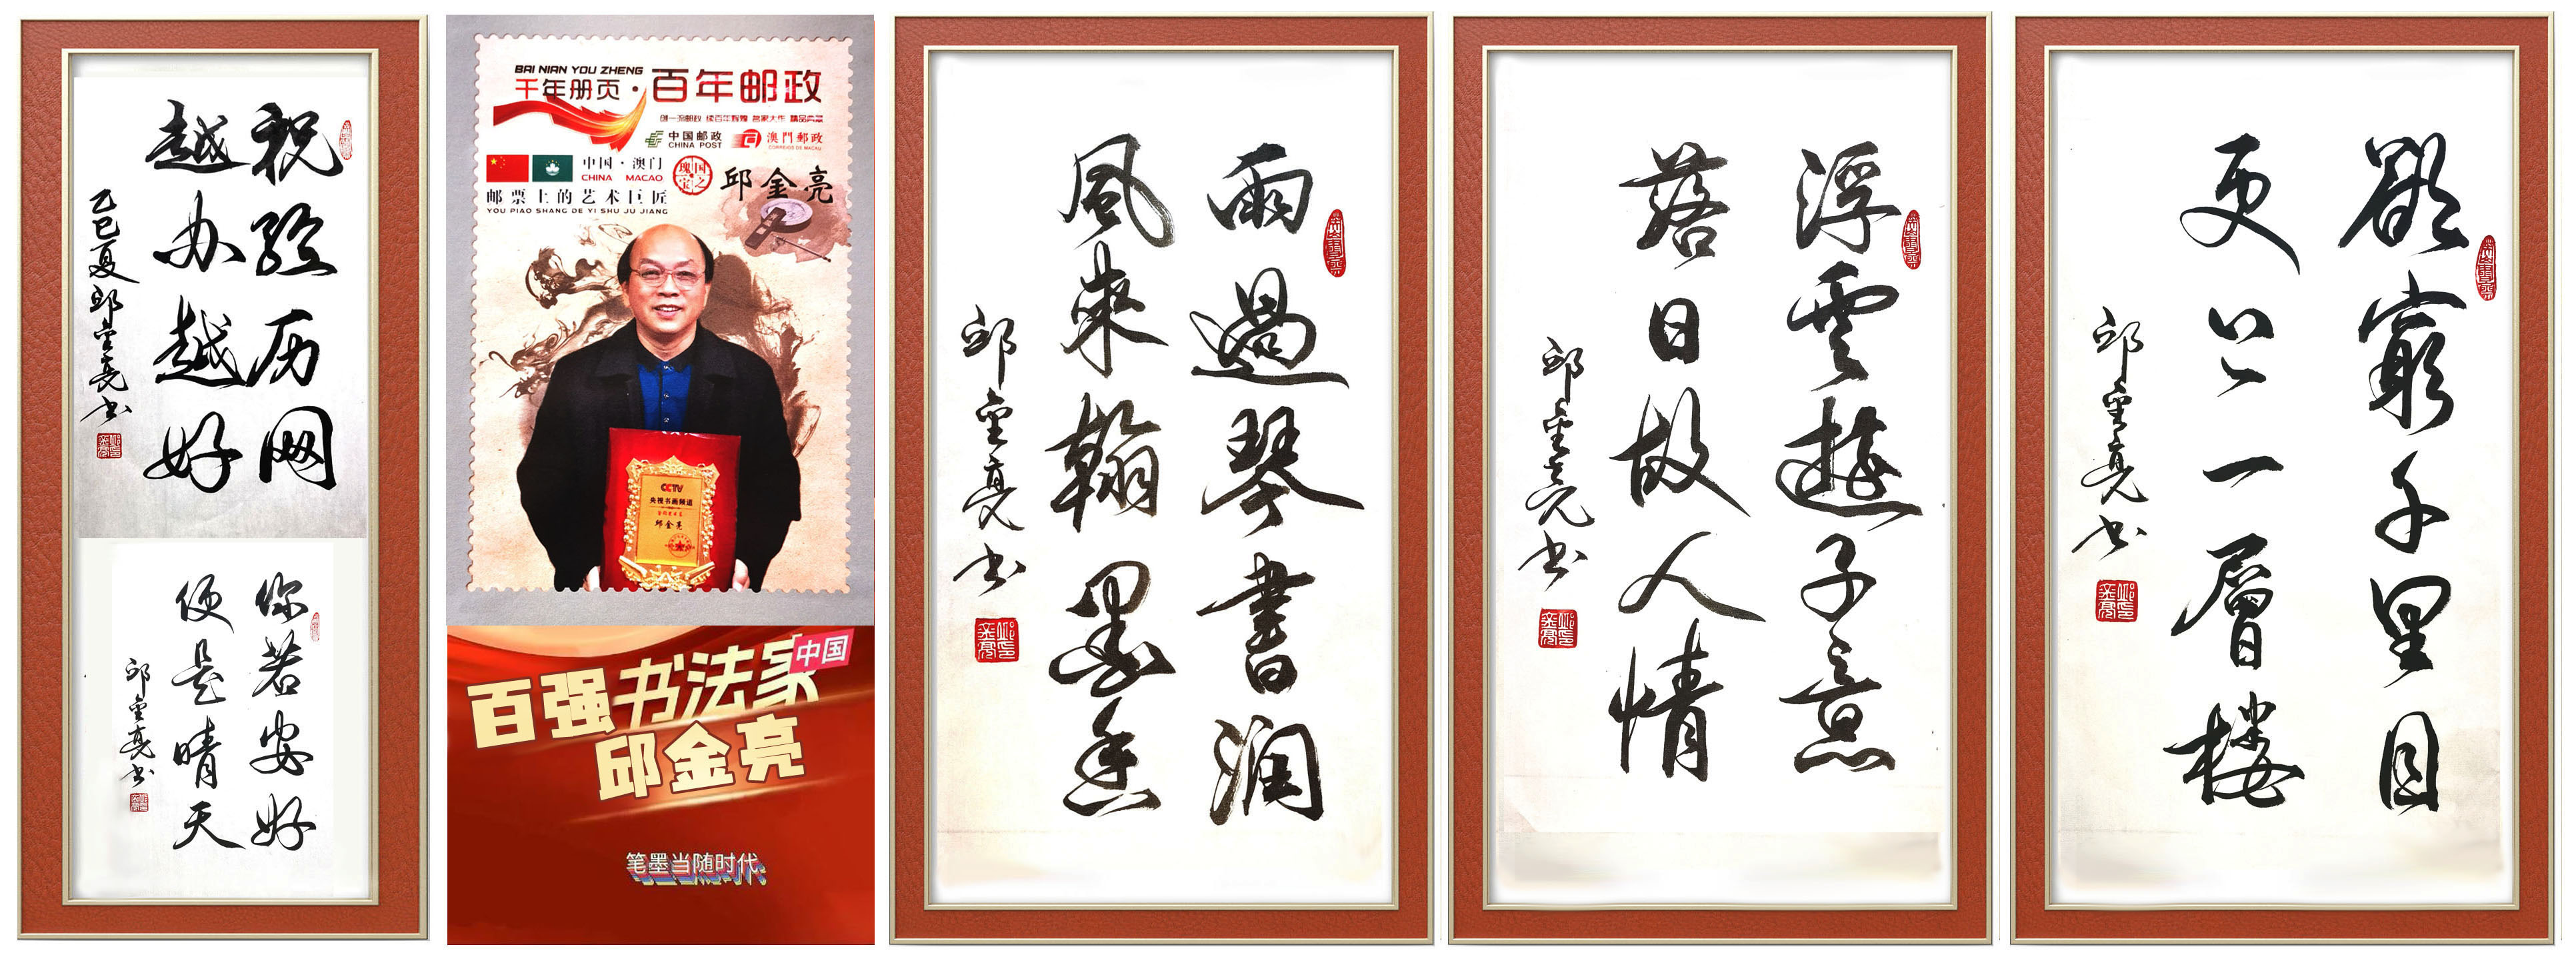 祝经历网
越办越好
乙巳夏邱金亮书
你若安好
便是晴天
邱金亮书
BAI NIAN YOU ZHENG
千年册页·百年邮政
创一流邮政 续百年辉煌 名家大作 精品典藏
中国邮政
CHINA POST
澳門郵政
CORREIOS DE MACAU
中国·澳门
CHINA MACAO
国之瑰宝
邱金亮
邮票上的艺术巨匠
YOU PIAO SHANG DE YI SHU JU JIANG
CCTV
央视书画频道
邱金亮
中国
百强书法家
邱金亮
笔墨当随时代
雨過琴書潤
風來翰墨香
邱金亮书
浮雲遊子意
落日故人情
邱金亮书
欲窮千里目
更上一層楼
邱金亮书